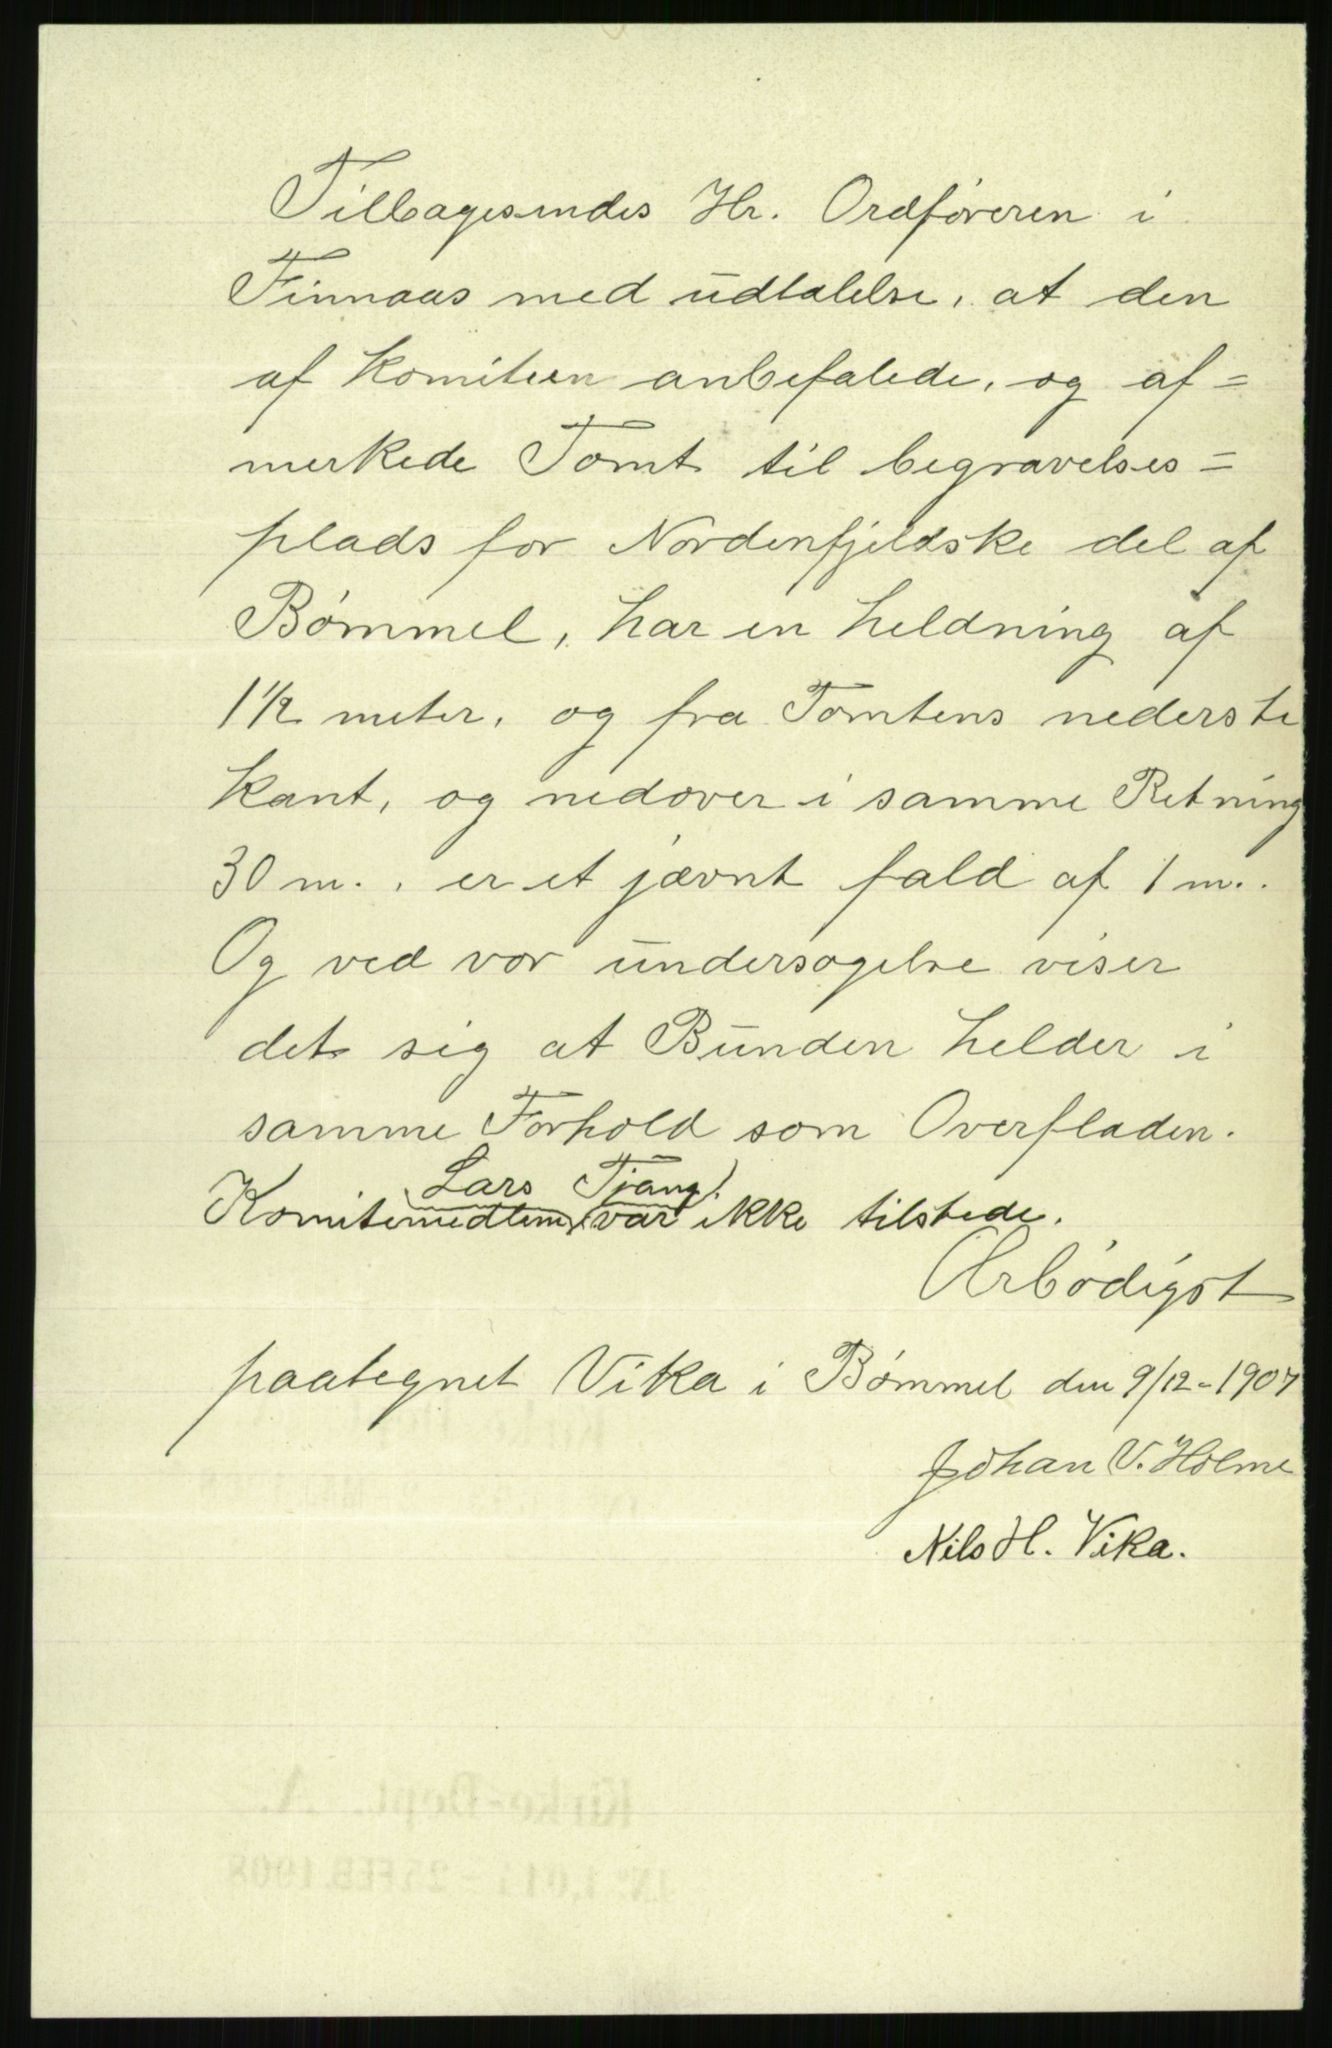 Tilbagesendes Hr. Ordføreren i
Finnaas med udtalelse, at den
af Komiteen anbefalede, og af=
merkede Tomt til begravelses=
plads for Nordenfjeldske del af
Bømmel, har en heldning af
1 1/2 meter, og fra Tomtens nederste
kant, og nedover i samme Retning
30 m., er et jævnt fald af 1 m..
Og ved vor undersøgelse viser
det sig at Bunden helder i
samme Forhold som Overfladen.
(Lars Tjang).
Komitemedlem var ikke tilstede.
Ærbødigst
paategnet Vika i Bømmel den 9/12-1907
Johan V. Holme
Nils H. Vika.
Kirke-Dept. A.
25 FEB. 1908